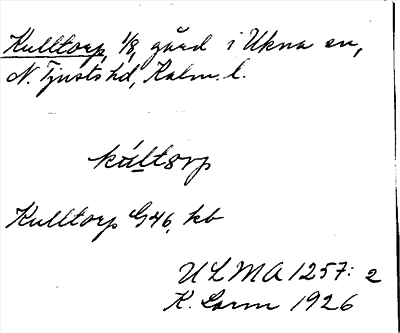 Kulltorp, 1/8, gård i Ukna sn,
N. Tjusts hd, Kalm. l.
kúltorp
Kulltorp G46, kb
ULMA 1257: 2
K. Lorm 1926